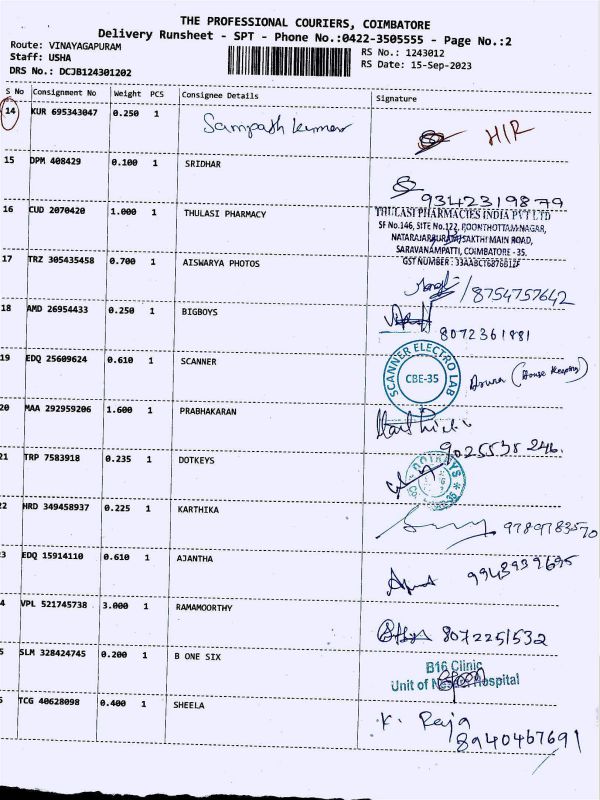 THE PROFESSIONAL COURIERS, COIMBATORE
Delivery Runsheet - SPT - Phone No.:0422-3505555 - Page No.:2
Route: VINAYAGAPURAM
RS No.: 1243012
Staff: USHA
RS Date: 15-Sep-2023
DRS No.: DCJB124301202
S No Consignment No Weight PCS Consignee Details Signature
14 KUR 695343047 0.250 1 Sampath kumar H/R
15 DPM 408429 0.100 1 SRIDHAR
9342319879
16 CUD 2070420 1.000 1 THULASI PHARMACY
THULASI PHARMACIES INDIA PVT LTD
SF No.146, SITE No.122, POONTHOTTAM NAGAR,
SAKTHI MAIN ROAD,
SARAVANAMPATTI, COIMBATORE - 35.
GST NUMBER :
17 TRZ 305435458 0.700 1 AISWARYA PHOTOS
/8754757642
18 AMD 26954433 0.250 1 BIGBOYS
8072361981
19 EDQ 25609624 0.610 1 SCANNER
SCANNER ELECTRO LAB
CBE-35
(House Keeping)
20 MAA 292959206 1.600 1 PRABHAKARAN
9025535246.
21 TRP 7583918 0.235 1 DOTKEYS
DOTKEYS
22 HRD 349458937 0.225 1 KARTHIKA
9789783570
3 EDQ 15914110 0.610 1 AJANTHA
9943939695
4 VPL 521745738 3.000 1 RAMAMOORTHY
8072251532
5 SLM 328424745 0.200 1 B ONE SIX
B16 Clinic
Unit of Hospital
TCG 40628098 0.400 1 SHEELA
K. Raja
8940467691